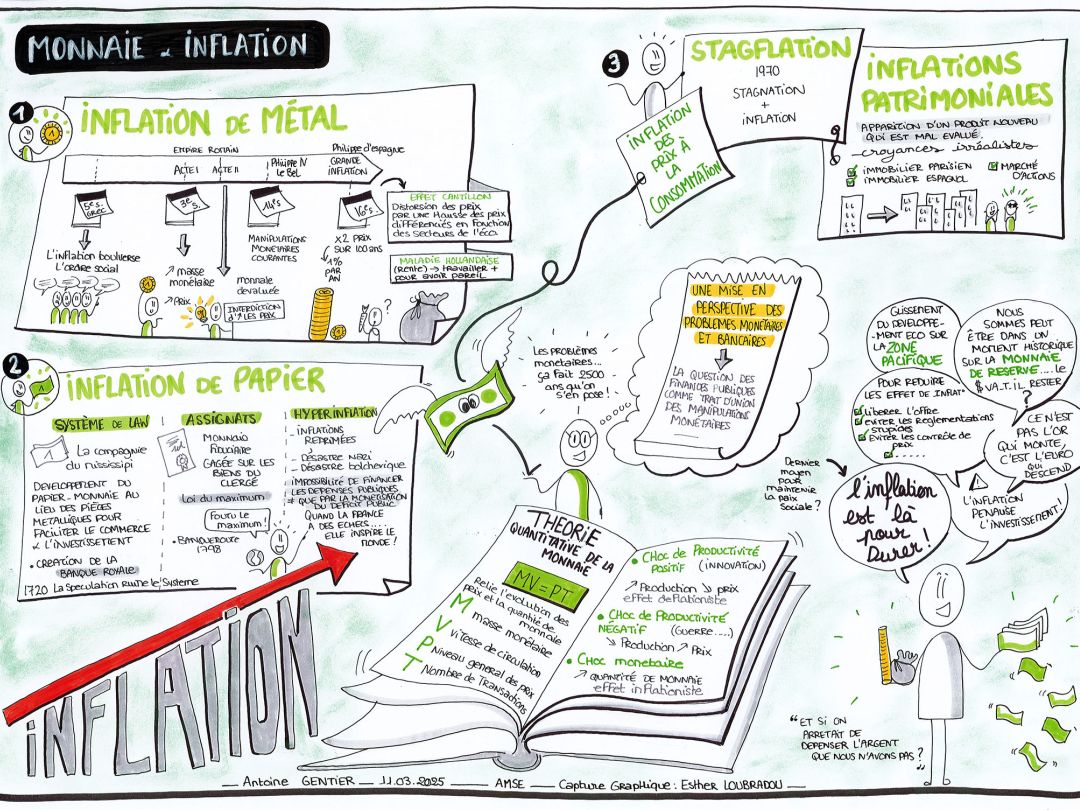 MONNAIE & INFLATION
1
INFLATION DE MÉTAL
EMPIRE ROMAIN
ACTE I ACTE II
PHILIPPE IV
LE BEL
Philippe d'espagne
GRANDE
INFLATION
5e s.
GREC
3e s.
14e s
16e s
L'inflation boulverse
L'ordre social
↗ masse
monétaire
↗ Prix
monnaie
devaluée
INTERDICTION
D'↗ LES PRIX
MANIPULATIONS
MONETAIRES
COURANTES
x2 PRIX
SUR 100 ans
1%
PAR
AN
?
EFFET CANTILLON
Distorsion des prix
par une Hausse des prix
différenciés en fonction
des secteurs de l'éco.
MALADIE HOLLANDAISE
(Rente) → travailler +
pour avoir pareil
2
INFLATION DE PAPIER
SYSTÈME DE LAW
1
La compagnie
du mississipi
DEVELOPPEMENT DU
PAPIER-MONNAIE AU
LIEU DES PIÈCES
METALLIQUES POUR
FACILITER LE COMMERCE
& L'INVESTISSEMENT
• CREATION DE LA
BANQUE ROYALE
1720 La speculation ruine le Système
ASSIGNATS
MONNAIE
FIDUCIAIRE
GAGÉE SUR LES
BIENS DU
CLERGÉ
Loi du maximum
Foutu le
maximum !
• BANQUEROUTE
1798
HYPERINFLATION
- INFLATIONS
REPRIMÉES
- DÉSASTRE NAZI
- DÉSASTRE bolchevique
IMPOSSIBILITÉ DE FINANCER
LES DEPENSES PUBLIQUES
≠ QUE PAR LA MONETISATION
DU DEFICIT PUBLIC
QUAND LA FRANCE
A DES ECHECS....
ELLE INSPIRE LE
MONDE !
INFLATION
3
INFLATION
DES
PRIX À
LA
CONSOMMATION
STAGFLATION
1970
STAGNATION
+
INFLATION
INFLATIONS
PATRIMONIALES
APPARITION D'UN PRODUIT NOUVEAU
QUI EST MAL EVALUÉ.
croyances irréalistes
IMMOBILIER PARISIEN
IMMOBILIER ESPAGNOL
MARCHÉ
D'ACTIONS
Les problèmes
monetaires...
ça fait 2500
ans qu'on
s'en pose !
UNE MISE EN
PERSPECTIVE DES
PROBLÈMES MONÉTAIRES
ET BANCAIRES
LA QUESTION DES
FINANCES PUBLIQUES
COMME TRAIT D'UNION
DES MANIPULATIONS
MONÉTAIRES
THEORIE
QUANTITATIVE DE LA
MONNAIE
MV = PT
Relie l'evolution des
prix et la quantité de
monnaie
M masse monétaire
V vitesse de circulation
P Niveau general des prix
T Nombre de Transactions
• CHOC de PRODUCTIVITÉ
POSITIF (INNOVATION)
↗ Production ↘ prix
effet deflationiste
• CHOC de PRODUCTIVITÉ
NÉGATIF (Guerre.....)
↘ Production ↗ Prix
• CHOC monetaire
↗ QUANTITÉ DE MONNAIE
effet inflationiste
GLISSEMENT
DU DEVELOPPE-
-MENT ECO SUR
LA ZONE
PACIFIQUE
NOUS
SOMMES PEUT
ÊTRE DANS UN
MOMENT HISTORIQUE
SUR LA MONNAIE
DE RESERVE....le
$ VA.T.IL RESTER
?
POUR REDUIRE
LES EFFET DE INFLAT°
LIBERER L'OFFRE
EVITER LES REGLEMENTATIONS
STUPIDES
EVITER LES CONTRÔLE DE
PRIX
......
CE N'EST
PAS L'OR
QUI MONTE,
C'EST L'EURO
QUI
DESCEND
DERNIER
moyen
POUR
maintenir
la paix
Sociale ?
L'inflation
est là
pour
Durer !
L'INFLATION
PENALISE
L'INVESTISSEMENT !
"ET SI ON
ARRETAIT DE
DEPENSER L'ARGENT
QUE NOUS N'AVONS PAS ?"
Antoine GENTIER — 11.03.2025 — AMSE — Capture Graphique : Esther LOUBRADOU